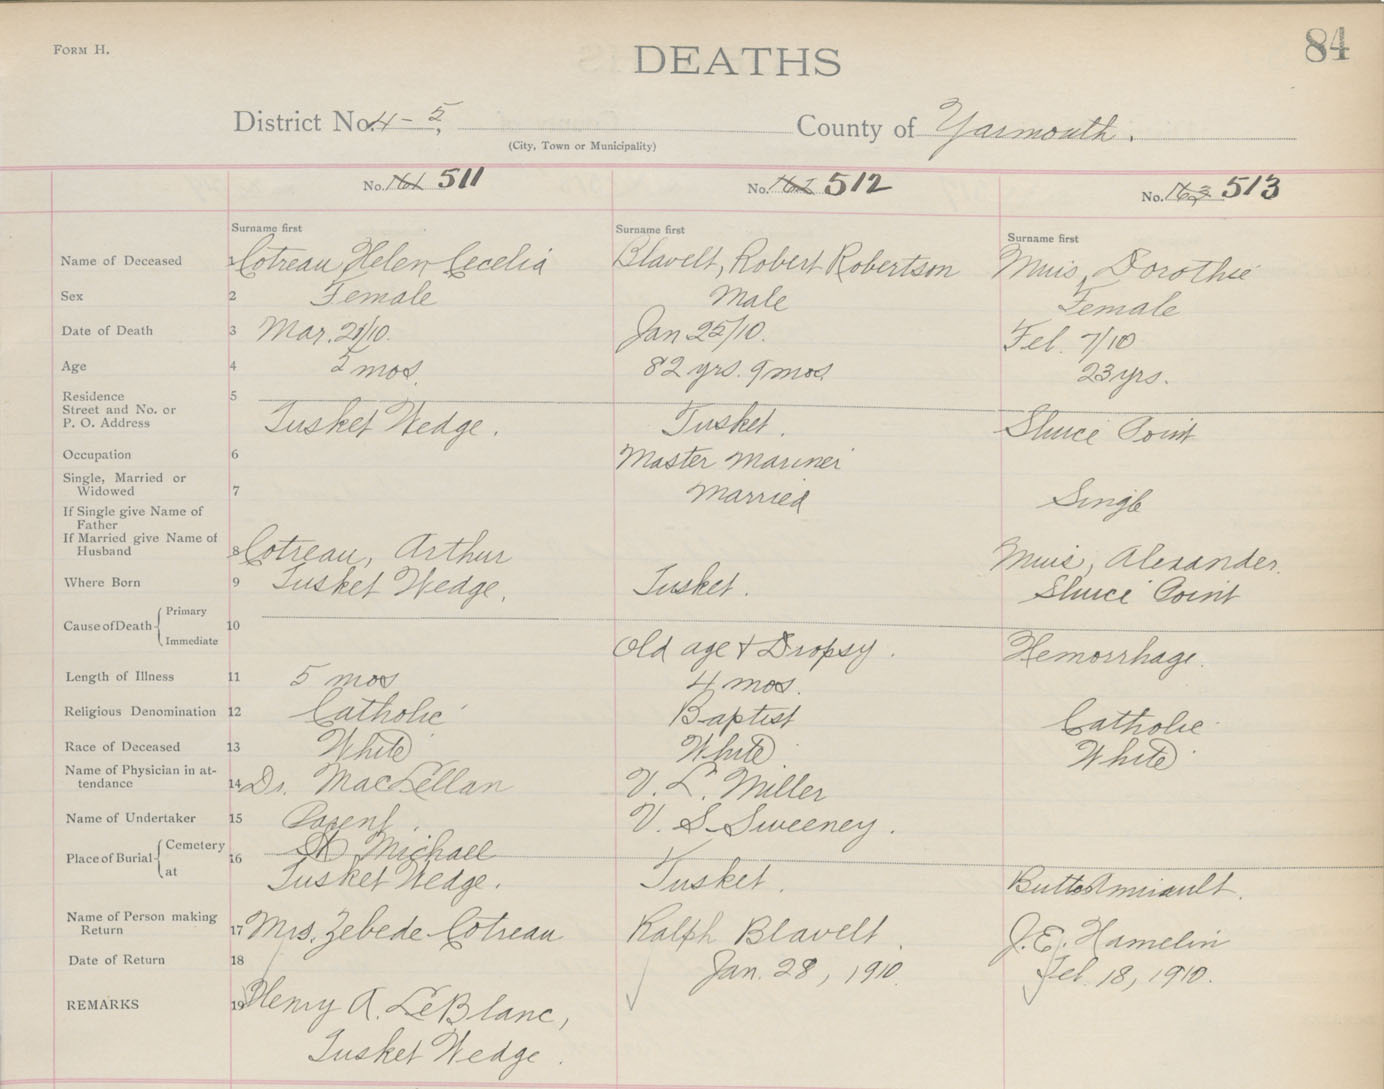 FORM H.
DEATHS
84
District No. 4-5, County of Yarmouth.
(City, Town or Municipality)
No. 161 511 No. 162 512 No. 163 513
Surname first Surname first Surname first
Name of Deceased 1 Cotreau, Helen Cecelia Blavelt, Robert Robertson Muis, Dorothie
Sex 2 Female Male Female
Date of Death 3 Mar. 21/10. Jan 25/10. Feb. 7/10
Age 4 5 mos. 82 yrs. 9 mos. 23 yrs.
Residence 5
Street and No. or
P. O. Address Tusket Wedge. Tusket. Sluice Point
Occupation 6 Master Mariner
Single, Married or
Widowed 7 Married Single
If Single give Name of
Father
If Married give Name of
Husband 8 Cotreau, Arthur Muis, Alexander.
Where Born 9 Tusket Wedge. Tusket. Sluice Point
Cause of Death Primary 10
Immediate Old age & Dropsy. Hemorrhage.
Length of Illness 11 5 mos 4 mos.
Religious Denomination 12 Catholic Baptist Catholic
Race of Deceased 13 White White White
Name of Physician in at-
tendance 14 Dr. MacLellan V. L. Miller
Name of Undertaker 15 Parent. V. S. Sweeney.
Place of Burial Cemetery 16 St Michael
at Tusket Wedge. Tusket. Butte Amirault.
Name of Person making
Return 17 Mrs. Zebede Cotreau Ralph Blavelt. J. E. Hamelin
Date of Return 18 Jan. 28, 1910. Feb. 18, 1910.
REMARKS 19 Henry A. LeBlanc,
Tusket Wedge.